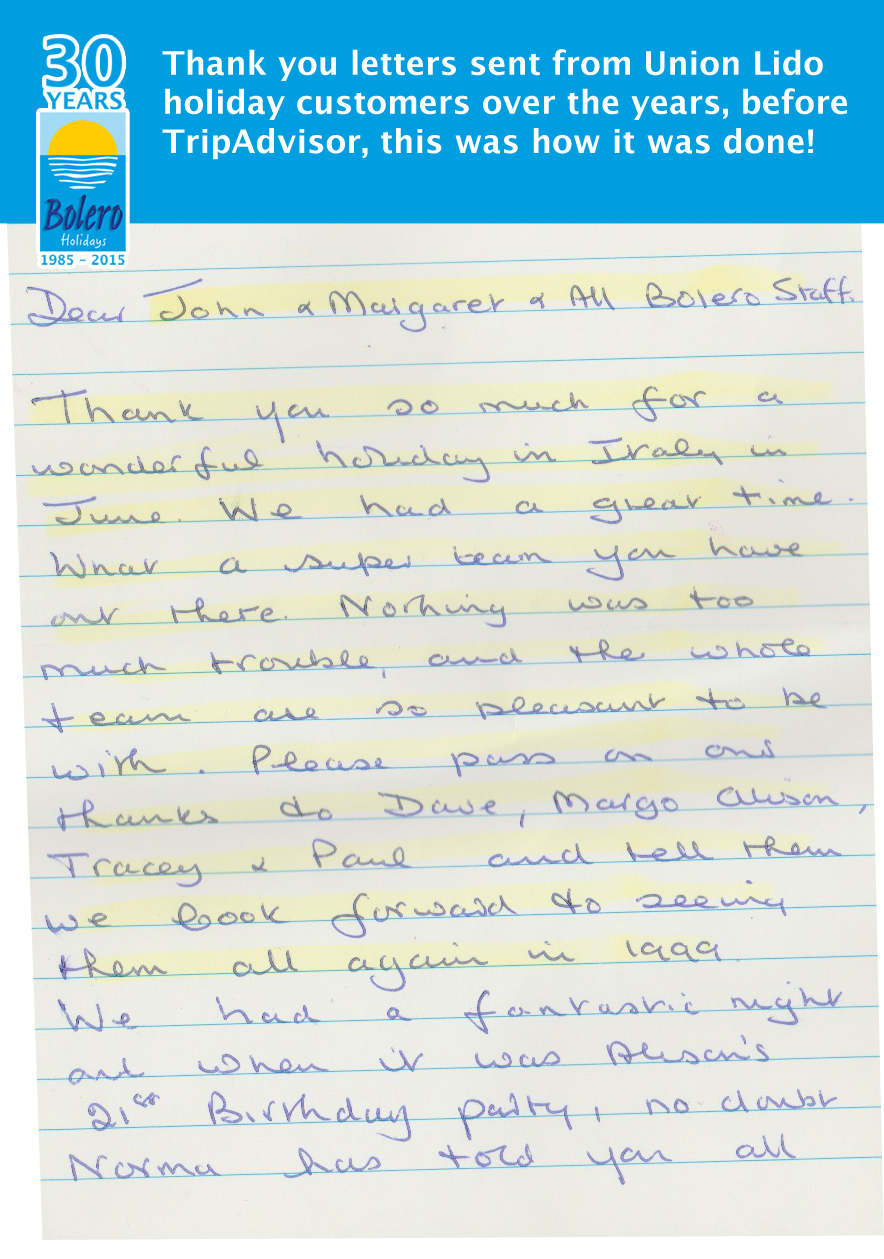 30
YEARS
Bolero
Holidays
1985 - 2015
Thank you letters sent from Union Lido
holiday customers over the years, before
TripAdvisor, this was how it was done!
Dear John & Margaret & All Bolero Staff.
Thank you so much for a
wonderful holiday in Italy in
June. We had a great time.
What a super team you have
out there. Nothing was too
much trouble, and the whole
team are so pleasant to be
with. Please pass on our
thanks to Dave, Margo Alison,
Tracey & Paul and tell them
we look forward to seeing
them all again in 1999.
We had a fantastic night
out when it was Alison's
21st Birthday party, no doubt
Norma has told you all